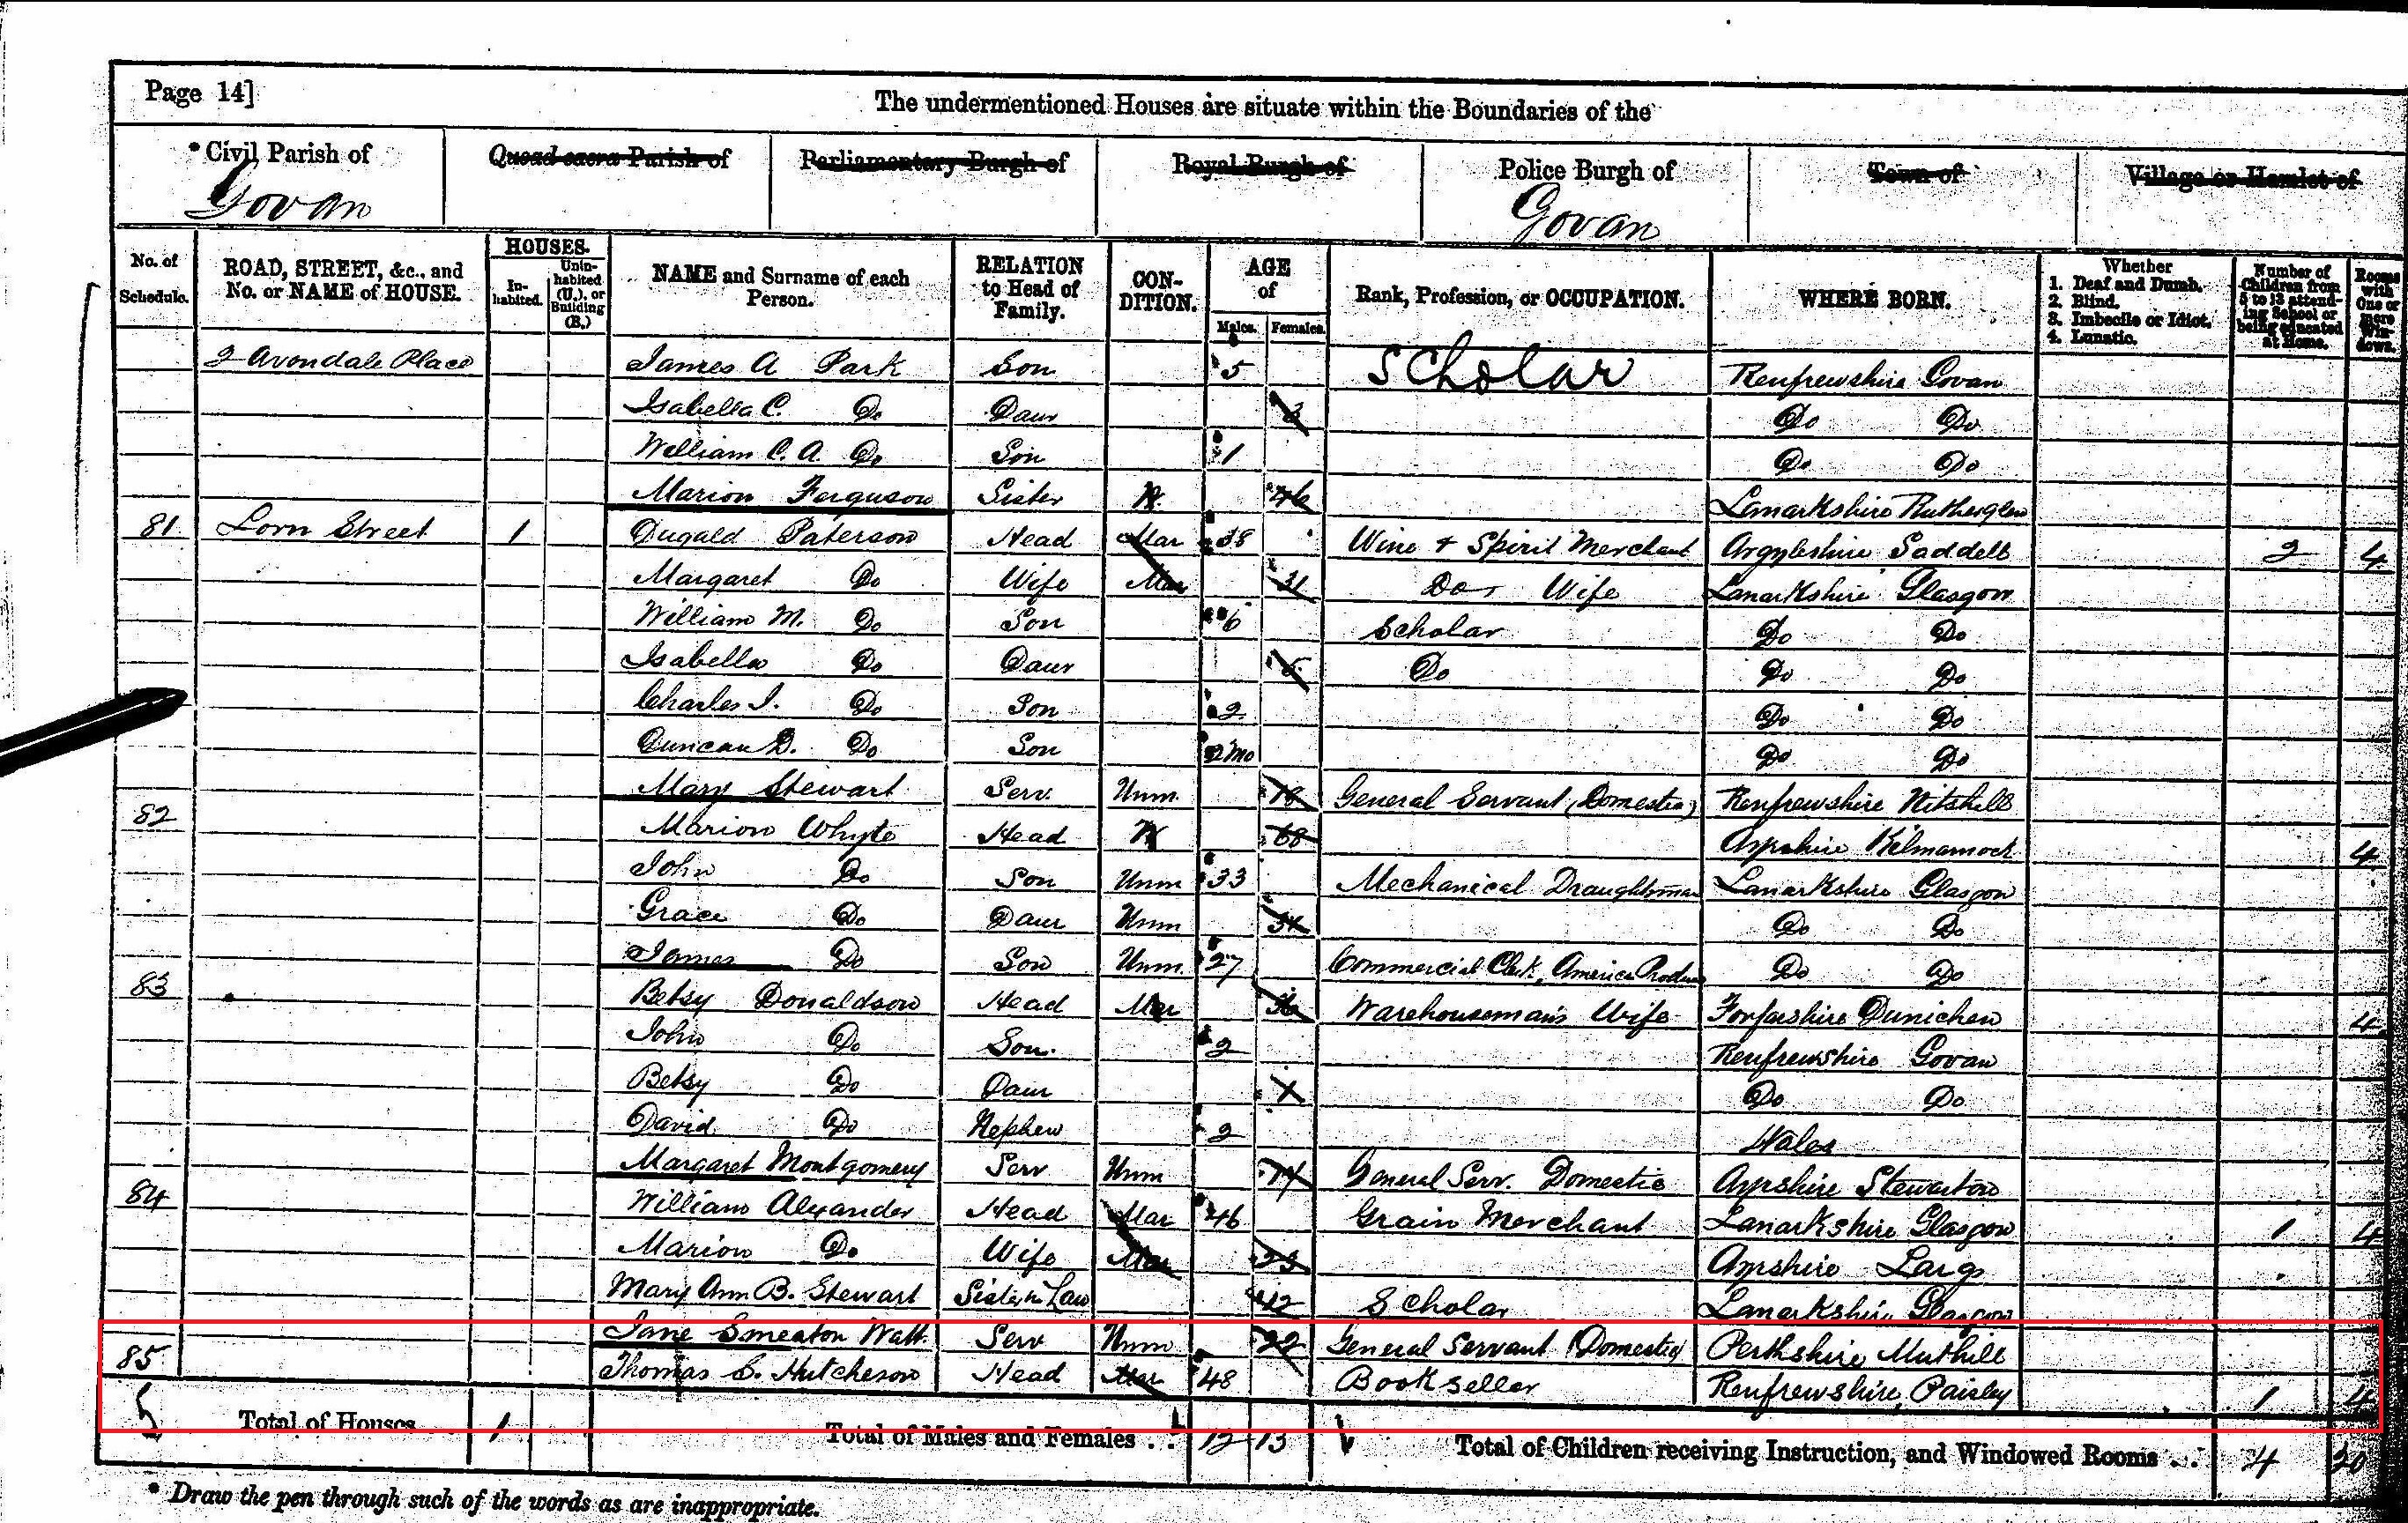 Page 14]
The undermentioned Houses are situate within the Boundaries of the
Civil Parish of Govan
Quoad sacra Parish of
Parliamentary Burgh of
Royal Burgh of
Police Burgh of Govan
Town of
Village or Hamlet of
No. of Schedule.
ROAD, STREET, &c., and No. or NAME of HOUSE.
HOUSES.
In-habited.
Unin-habited (U.), or Building (B.)
NAME and Surname of each Person.
RELATION to Head of Family.
CON-DITION.
AGE of
Males.
Females.
Rank, Profession, or OCCUPATION.
WHERE BORN.
Whether
1. Deaf and Dumb.
2. Blind.
3. Imbecile or Idiot.
4. Lunatic.
Number of Children from 5 to 13 attend-ing School or being educated at Home.
Rooms with One or more Win-dows.
2 Avondale Place James A Park Son 5 Scholar Renfrewshire Govan
Isabella C. Do Daur 3 Do Do
William C. A. Do Son 1 Do Do
Marion Ferguson Sister W. 46 Lanarkshire Rutherglen
81 Lorn Street 1 Dugald Paterson Head Mar 38 Wine & Spirit Merchant Argyleshire Saddell 2 4
Margaret Do Wife Mar 31 Do Wife Lanarkshire Glasgow
William M. Do Son 6 Scholar Do Do
Isabella Do Daur Do Do Do
Charles I. Do Son 2 Do Do
Duncan D. Do Son 2 Mo Do Do
Mary Stewart Serv. Unm. General Servant (Domestic) Renfrewshire Nitshill
82 Marion Whyte Head W 68 Ayrshire Kilmarnock 4
John Do Son Unm 33 Mechanical Draughtsman Lanarkshire Glasgow
Grace Do Daur Unm Do Do
James Do Son Unm. 27 Commercial Clerk, America Produce Do Do
83 Betsy Donaldson Head Mar Warehouseman's Wife Forfarshire Dunichen 4
John Do Son. 2 Renfrewshire Govan
Betsy Do Daur Do Do
David Do Nephew 2 Wales
Margaret Montgomery Serv Unm General Serv. Domestic Ayrshire Stewarton
84 William Alexander Head Mar 46 Grain Merchant Lanarkshire Glasgow 1 4
Marion Do Wife Mar 23 Ayrshire Largs
Mary Ann B. Stewart Sister in Law 12 Scholar Lanarkshire Glasgow
Jane Smeaton Watt. Serv Unm 22 General Servant (Domestic) Perthshire Muthill
85 Thomas S. Hutcheson Head Mar 48 Bookseller Renfrewshire, Paisley 1 4
5 Total of Houses 1 Total of Males and Females . . 12 13 Total of Children receiving Instruction, and Windowed Rooms . . . 4 20
* Draw the pen through such of the words as are inappropriate.